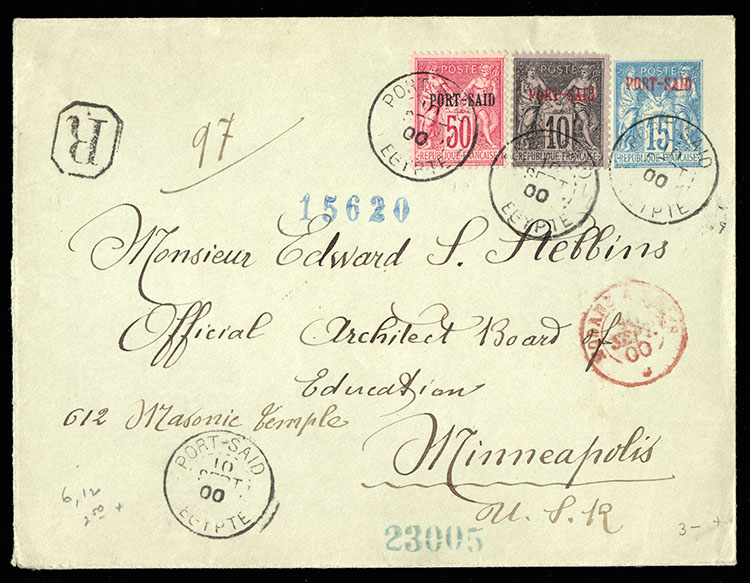 POSTE
PORT-SAID
50
REPUBLIQUE FRANÇAISE
POSTE
PORT-SAID
10
REPUBLIQUE FRANÇAISE
POSTE
PORT-SAID
15
REPUBLIQUE FRANÇAISE
PORT
00
EGYPTE
SEPT
00
EGYPTE
SAID
00
YPTE
R
97
15620
Monsieur Edward S. Stebbins
Official Architect Board of
Education
612 Masonic temple
Minneapolis
U. S. R
SEPT
00
PORT-SAID
10
SEPT
00
EGYPTE
6,12
2 50 +
23005
3-